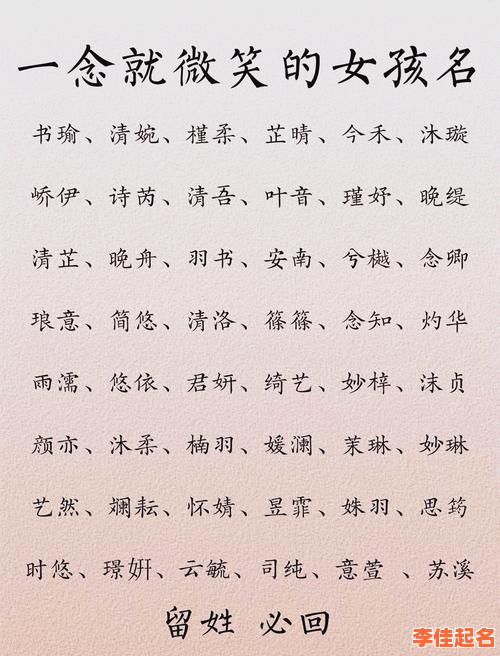 一念就微笑的女孩名
书瑜、清婉、槿柔、芷晴、今禾、沐璇
峤伊、诗芮、清吾、叶音、瑾妤、晚缇
清芷、晚舟、羽书、安南、兮樾、念卿
琅意、简悠、清洛、篠篠、念知、灼华
雨濡、悠依、君妍、绮艺、妙梓、沫贞
颜亦、沐柔、楠羽、媛澜、茉琳、妙琳
艺然、斓耘、怀婧、昱霏、姝羽、思筠
时悠、璟妍、云毓、司纯、意萱 、苏溪
留姓 必回
李佳起名